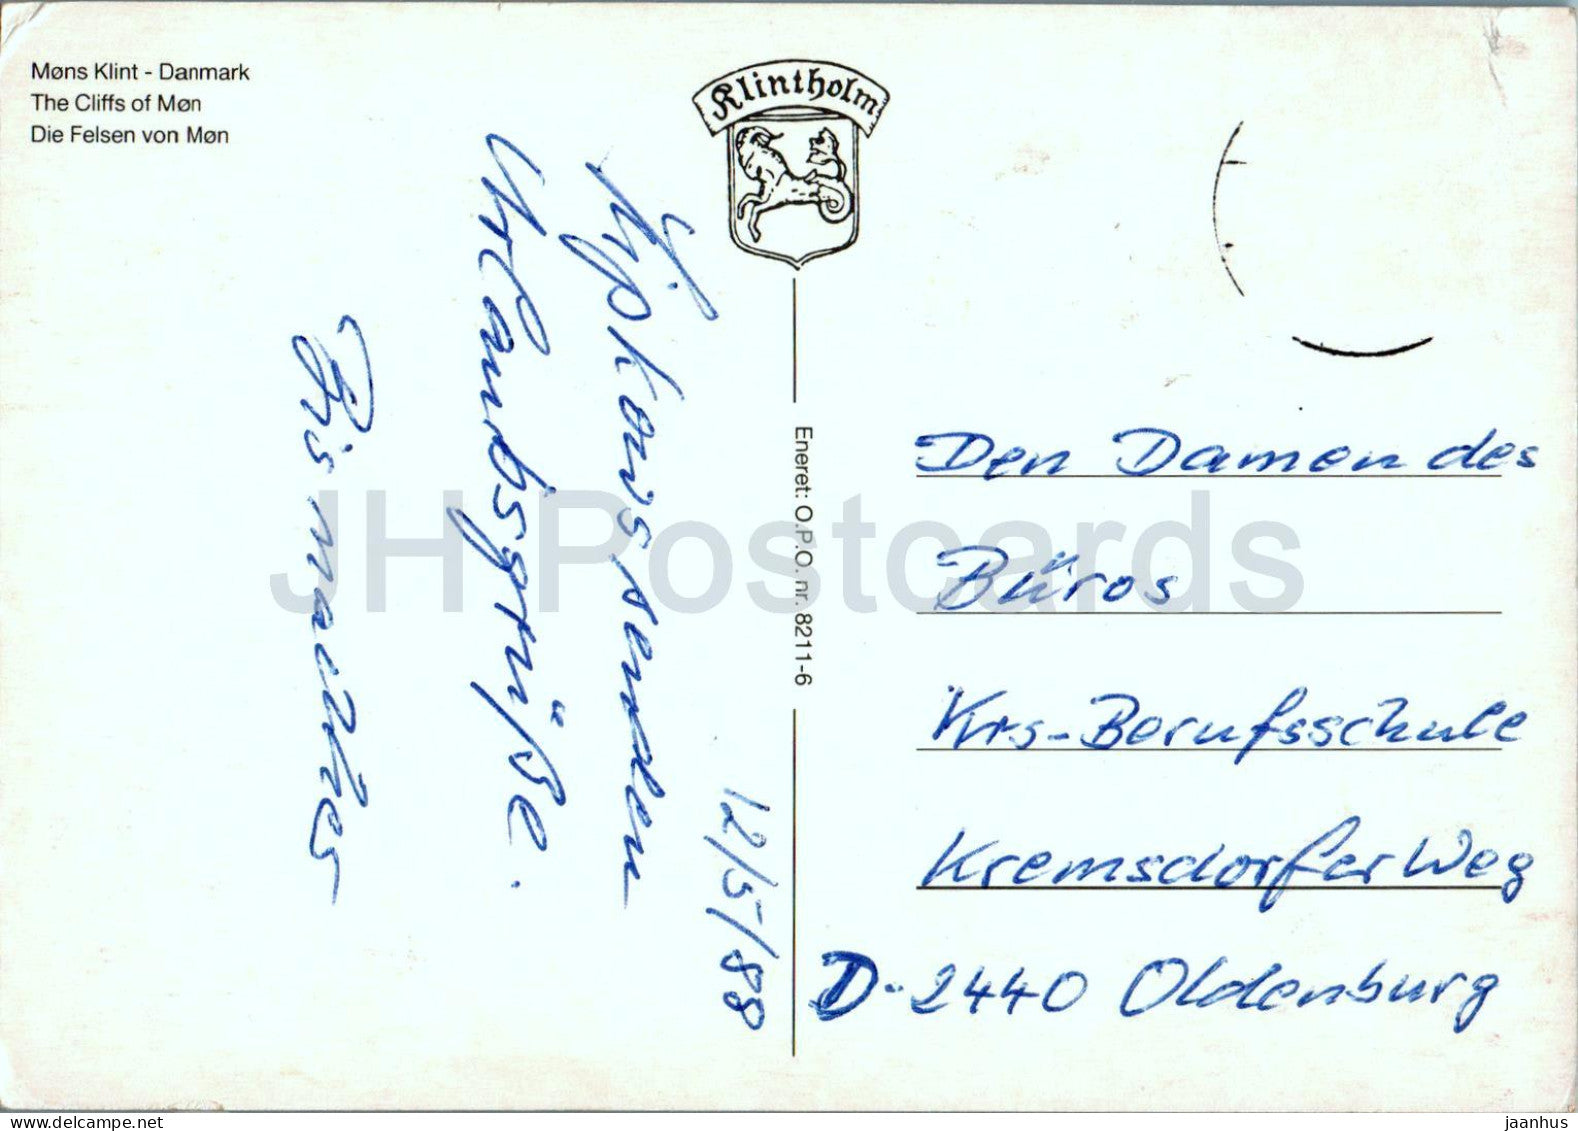 Møns Klint - Danmark
The Cliffs of Møn
Die Felsen von Møn
Klintholm
12/5/88
senden
Urlaubsgrüße.
Eneret: O.P.O. nr. 8211-6
Den Damen des
Büros
Krs-Berufsschule
Kremsdorfer Weg
D-2440 Oldenburg
JH Postcards
My-store.ee
jaanhus